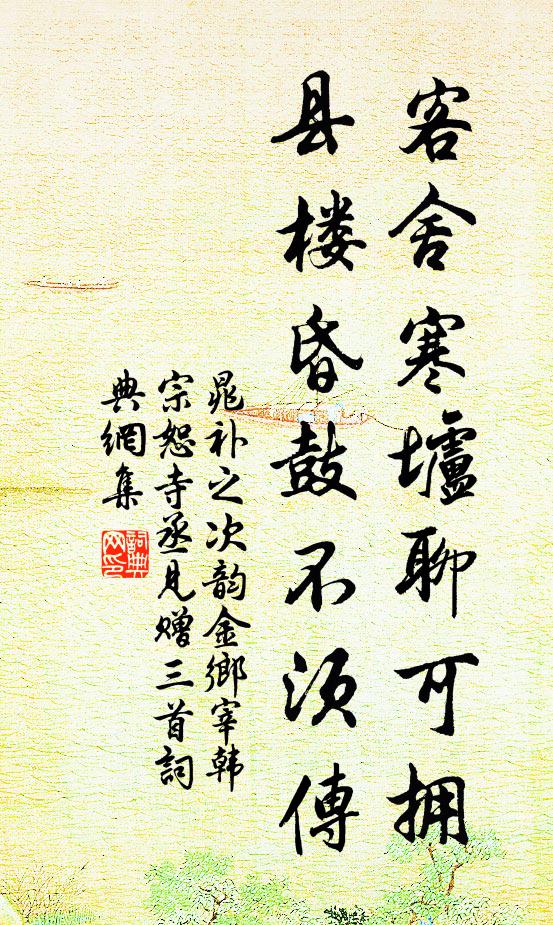 客舍寒壚聊可拥
县楼昏鼓不须傳
晁补之次韵金鄉宰韩
宗恕寺丞見赠三首詞
典網集
詞典网印